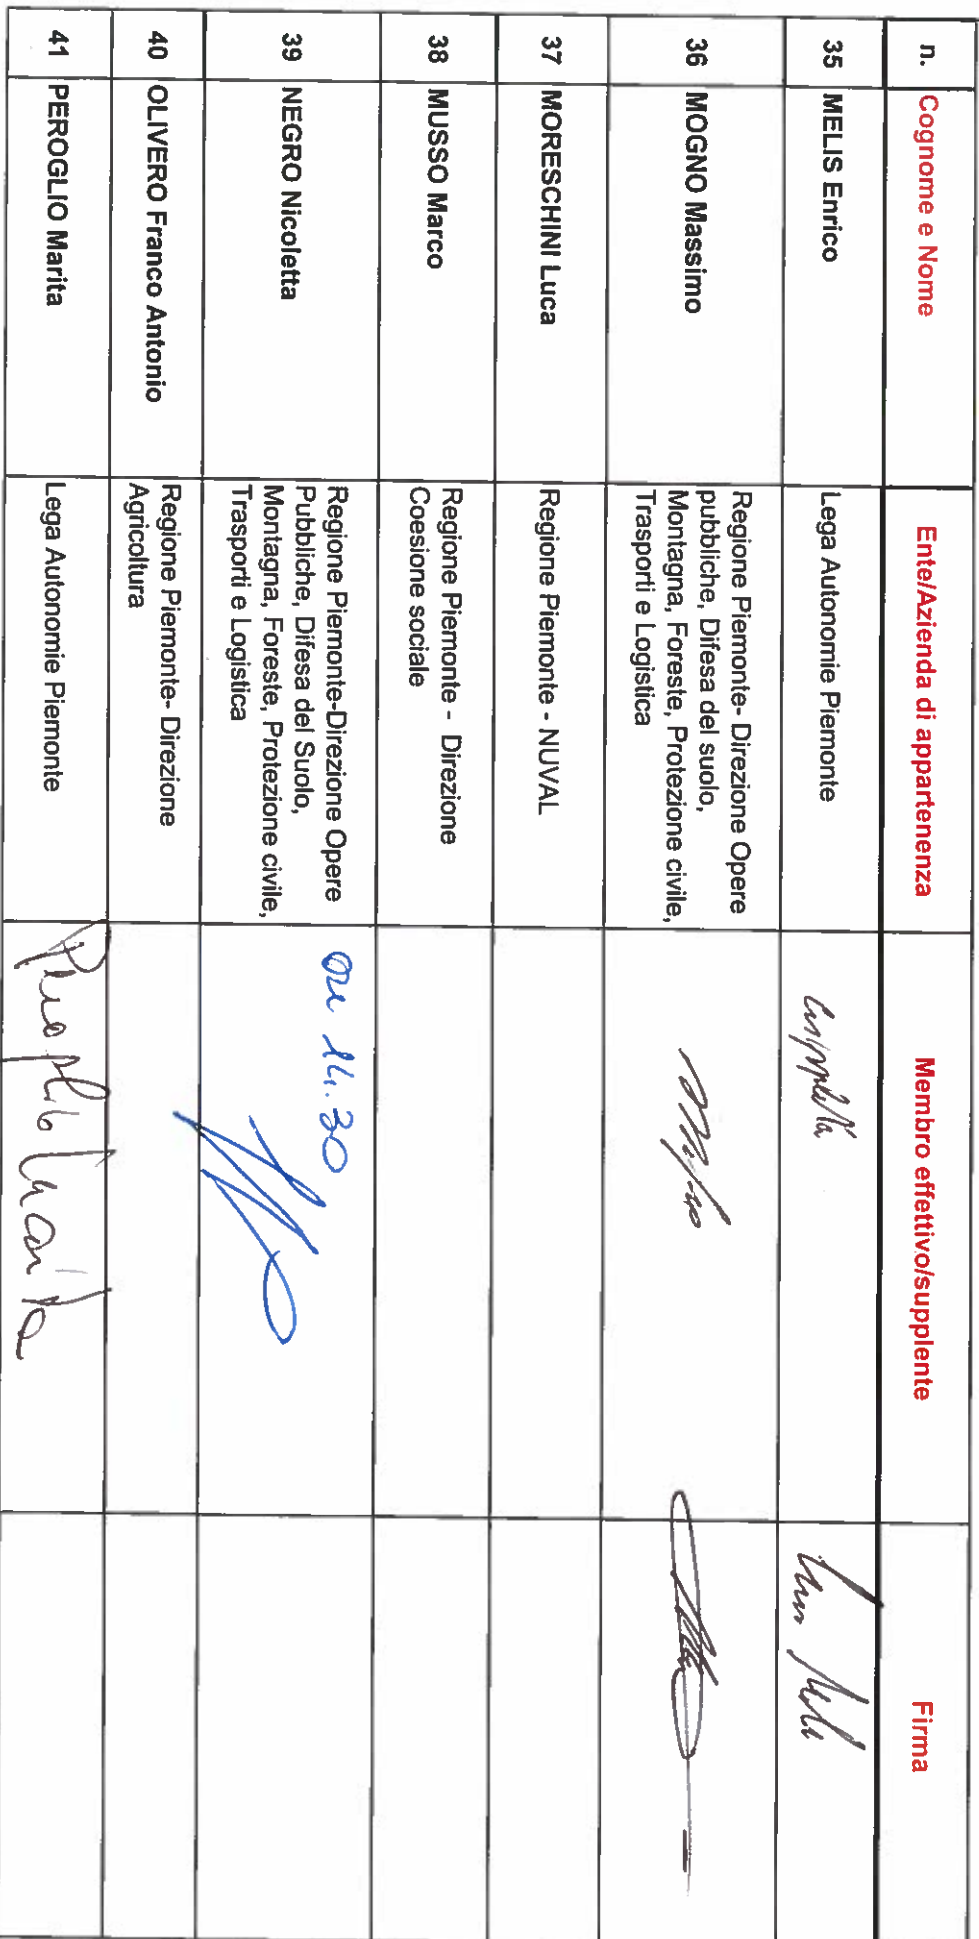 n. Cognome e Nome Ente/Azienda di appartenenza Membro effettivo/supplente Firma
35 MELIS Enrico Lega Autonomie Piemonte
36 MOGNO Massimo Regione Piemonte- Direzione Opere
pubbliche, Difesa del suolo,
Montagna, Foreste, Protezione civile,
Trasporti e Logistica
37 MORESCHINI Luca Regione Piemonte - NUVAL
38 MUSSO Marco Regione Piemonte - Direzione
Coesione sociale
39 NEGRO Nicoletta Regione Piemonte-Direzione Opere
Pubbliche, Difesa del Suolo,
Montagna, Foreste, Protezione civile,
Trasporti e Logistica
ore 14.30
40 OLIVERO Franco Antonio Regione Piemonte- Direzione
Agricoltura
41 PEROGLIO Marita Lega Autonomie Piemonte Peroglio Marita